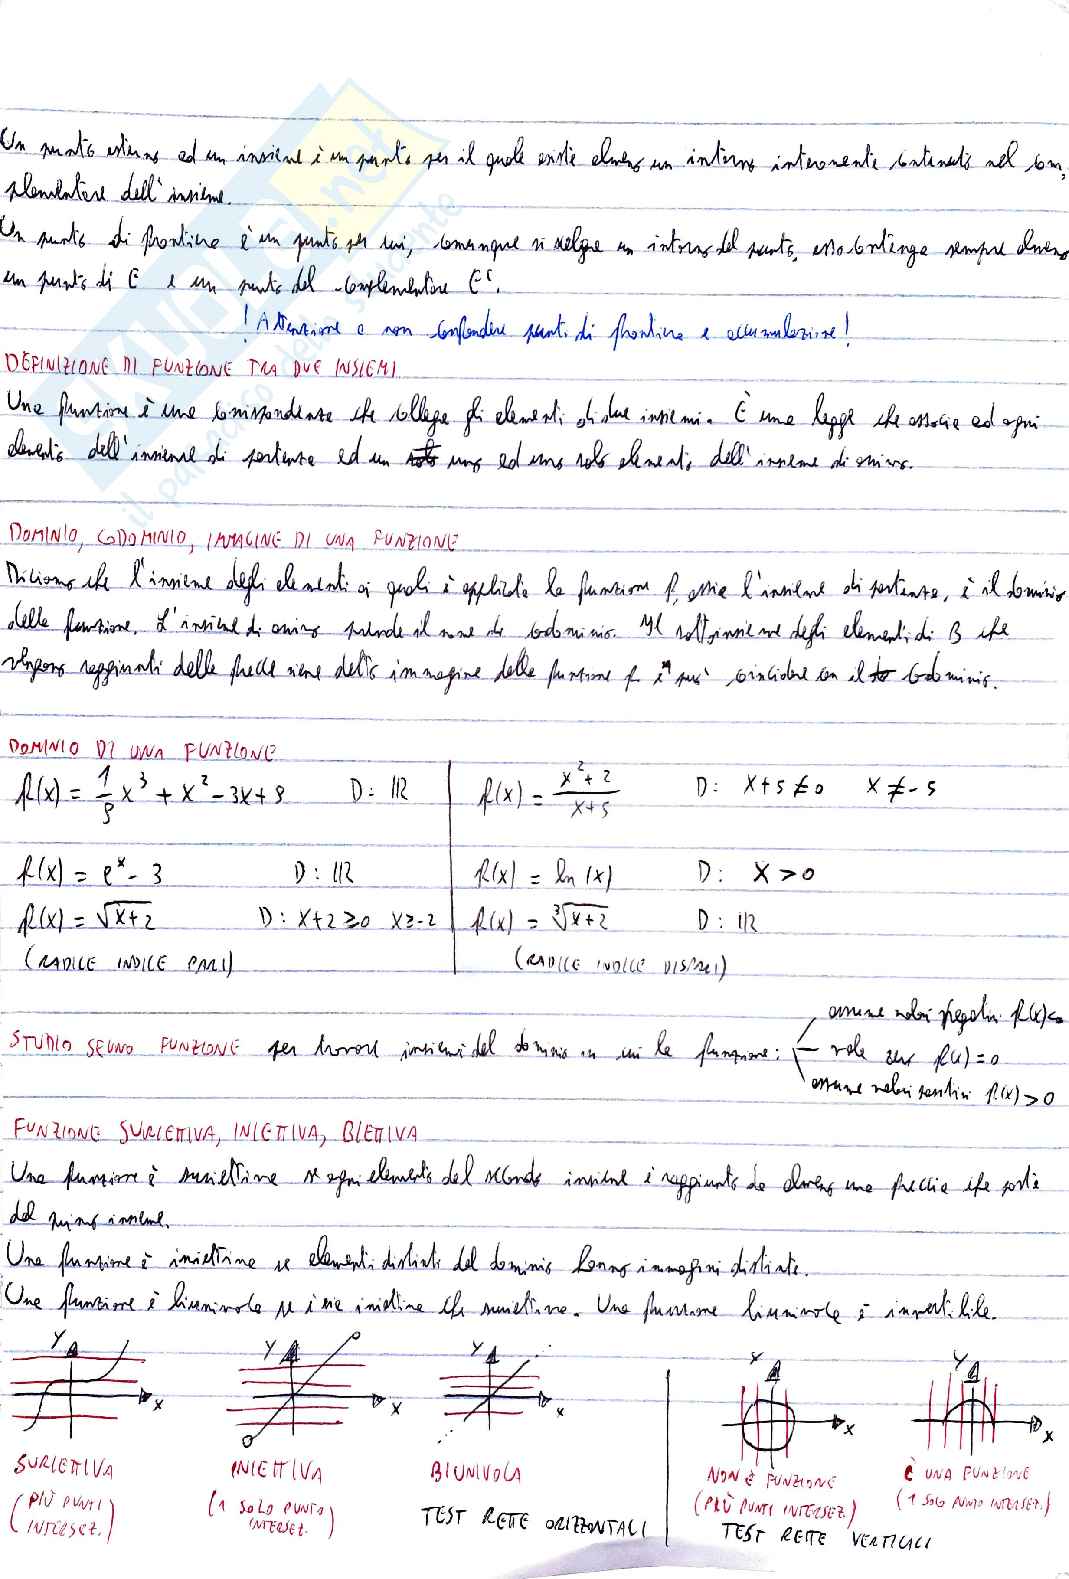 Un punto esterno ad un insieme è un punto per il quale esiste almeno un intorno interamente contenuto nel com-
plementare dell'insieme.
Un punto di frontiera è un punto per cui, comunque si scelga un intorno del punto, esso contenga sempre almeno
un punto di E e un punto del complementare Eᶜ.
! Attenzione a non confondere punti di frontiera e accumulazione!
DEFINIZIONE DI FUNZIONE TRA DUE INSIEMI
Una funzione è una corrispondenza che collega gli elementi di due insiemi. È una legge che associa ad ogni
elemento dell'insieme di partenza ed un solo uno ed uno solo elemento dell'insieme di arrivo.
DOMINIO, CODOMINIO, IMMAGINE DI UNA FUNZIONE
Diciamo che l'insieme degli elementi ai quali è applicata la funzione f, ossia l'insieme di partenza, è il dominio
della funzione. L'insieme di arrivo prende il nome di codominio. Il sottoinsieme degli elementi di B che
vengono raggiunti dalle frecce viene detto immagine della funzione f e può coincidere con il codominio.
DOMINIO DI UNA FUNZIONE
f(x) = 1/9 x³ + x² - 3x + 9 D: ℝ
f(x) = (x² + 2)/(x+5) D: x+5 ≠ 0 x ≠ -5
f(x) = eˣ - 3 D: ℝ
f(x) = ln(x) D: x > 0
f(x) = √(x+2) D: x+2 ≥ 0 x ≥ -2
f(x) = ∛(x+2) D: ℝ
(RADICE INDICE PARI)
(RADICE INDICE DISPARI)
assume valori negativi f(x)<0
STUDIO SEGNO FUNZIONE per trovare insiemi del dominio in cui la funzione: vale zero f(x) = 0
assume valori positivi f(x) > 0
FUNZIONE SURIETTIVA, INIETTIVA, BIETTIVA
Una funzione è suriettiva se ogni elemento del secondo insieme è raggiunto da almeno una freccia che parte
dal primo insieme.
Una funzione è iniettiva se elementi distinti del dominio hanno immagini distinte.
Una funzione è biunivoca se è sia iniettiva che suriettiva. Una funzione biunivoca è invertibile.
Y X
Y X
Y X
Y X
Y X
SURIETTIVA
(PIÙ PUNTI
INTERSEZ.)
INIETTIVA
(1 SOLO PUNTO
INTERSEZ.)
BIUNIVOCA
TEST RETTE ORIZZONTALI
NON È FUNZIONE
(PIÙ PUNTI INTERSEZ.)
TEST RETTE VERTICALI
È UNA FUNZIONE
(1 SOLO PUNTO INTERSEZ.)